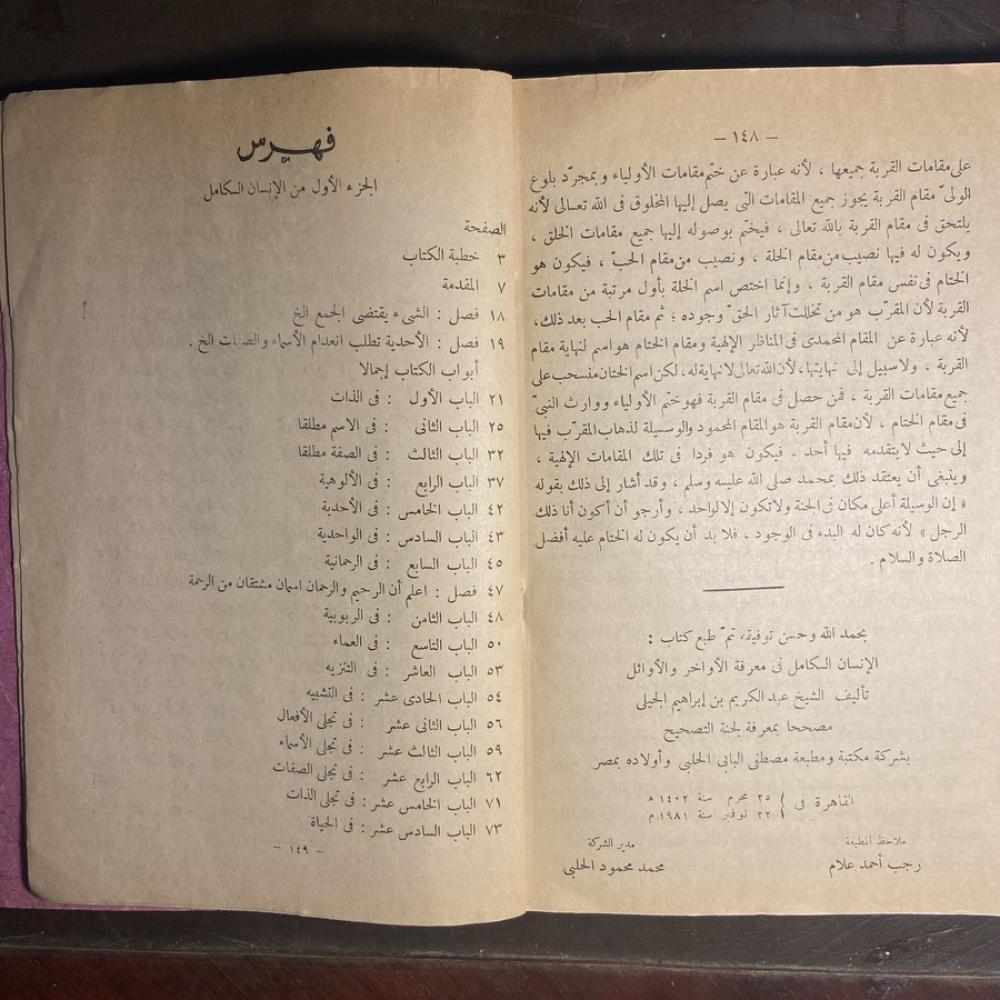 — ١٤٨ —
على مقامات القربة جميعها ، لأنه عبارة عن ختم مقامات الأولياء وبمجرّد بلوغ
الولىّ مقام القربة يجوز جميع المقامات التى يصل إليها المخلوق فى الله تعالى لأنه
يلتحق فى مقام القربة بالله تعالى ، فيختم بوصوله إليها جميع مقامات الخلق ،
ويكون له فيها نصيب من مقام الخلة ، ونصيب من مقام الحبّ ، فيكون هو
الختام فى نفس مقام القربة ، وإنما اختص اسم الخلة بأول مرتبة من مقامات
القربة لأن المقرّب هو من تخللت آثار الحقّ وجوده ؛ ثم مقام الحب بعد ذلك،
لأنه عبارة عن المقام المحمدى فى المناظر الإلهية ومقام الختام هو اسم لنهاية مقام
القربة ، ولاسبيل إلى نهايتها، لأن الله تعالى لانهاية له، لكن اسم الختان منسحب على
جميع مقامات القربة ، فمن حصل فى مقام القربة فهو ختم الأولياء ووارث النبىّ
فى مقام الختام ، لأن مقام القربة هو المقام المحمود والوسيلة لذهاب المقرّب فيها
إلى حيث لا يتقدمه فيها أحد . فيكون هو فردا فى تلك المقامات الإلهية ،
وينبغى أن يعتقد ذلك بمحمد صلى الله عليه وسلم ، وقد أشار إلى ذلك بقوله
« إن الوسيلة أعلى مكان فى الجنة ولاتكون إلا لواحد ، وأرجو أن أكون أنا ذلك
الرجل » لأنه كان له البدء فى الوجود ، فلا بد أن يكون له الختام عليه أفضل
الصلاة والسلام .
بحمد الله وحسن توفيقه، تمّ طبع كتاب :
الإنسان الكامل فى معرفة الأواخر والأوائل
تأليف الشيخ عبد الكريم بن إبراهيم الجيلى
مصححا بمعرفة لجنة التصحيح
بشركة مكتبة ومطبعة مصطفى البابى الحلبى وأولاده بمصر
القاهرة فى { ٢٥ محرم سنة ١٤٠٢ ه
٢٢ نوفبر سنة ١٩٨١ م
ملاحظ المطبعة
رجب أحمد علام
مدير الشركة
محمد محمود الحلبى
فهرس
الجزء الأول من الإنسان الكامل
الصفحة
٣ خطبة الكتاب
٧ المقدمة
١٨ فصل : الشىء يقتضى الجمع الخ
١٩ فصل : الأحدية تطلب انعدام الأسماء والصفات الخ .
أبواب الكتاب إجمالا
٢١ الباب الأول : فى الذات
٢٥ الباب الثانى : فى الاسم مطلقا
٣٢ الباب الثالث : فى الصفة مطلقا
٣٧ الباب الرابع : فى الألوهية
٤٢ الباب الخامس : فى الأحدية
٤٣ الباب السادس : فى الواحدية
٤٥ الباب السابع : فى الرحمانية
٤٧ فصل : اعلم أن الرحيم والرحمان اسمان مشتقان من الرحمة
٤٨ الباب الثامن : فى الربوبية
٥٠ الباب التاسع : فى العماء
٥٣ الباب العاشر : فى التنزيه
٥٤ الباب الحادى عشر : فى التشبيه
٥٦ الباب الثانى عشر : فى تجلى الأفعال
٥٩ الباب الثالث عشر : فى تجلى الأسماء
٦٢ الباب الرابع عشر : فى تجلى الصفات
٧١ الباب الخامس عشر : فى تجلى الذات
٧٣ الباب السادس عشر : فى الحياة
— ١٤٩ —